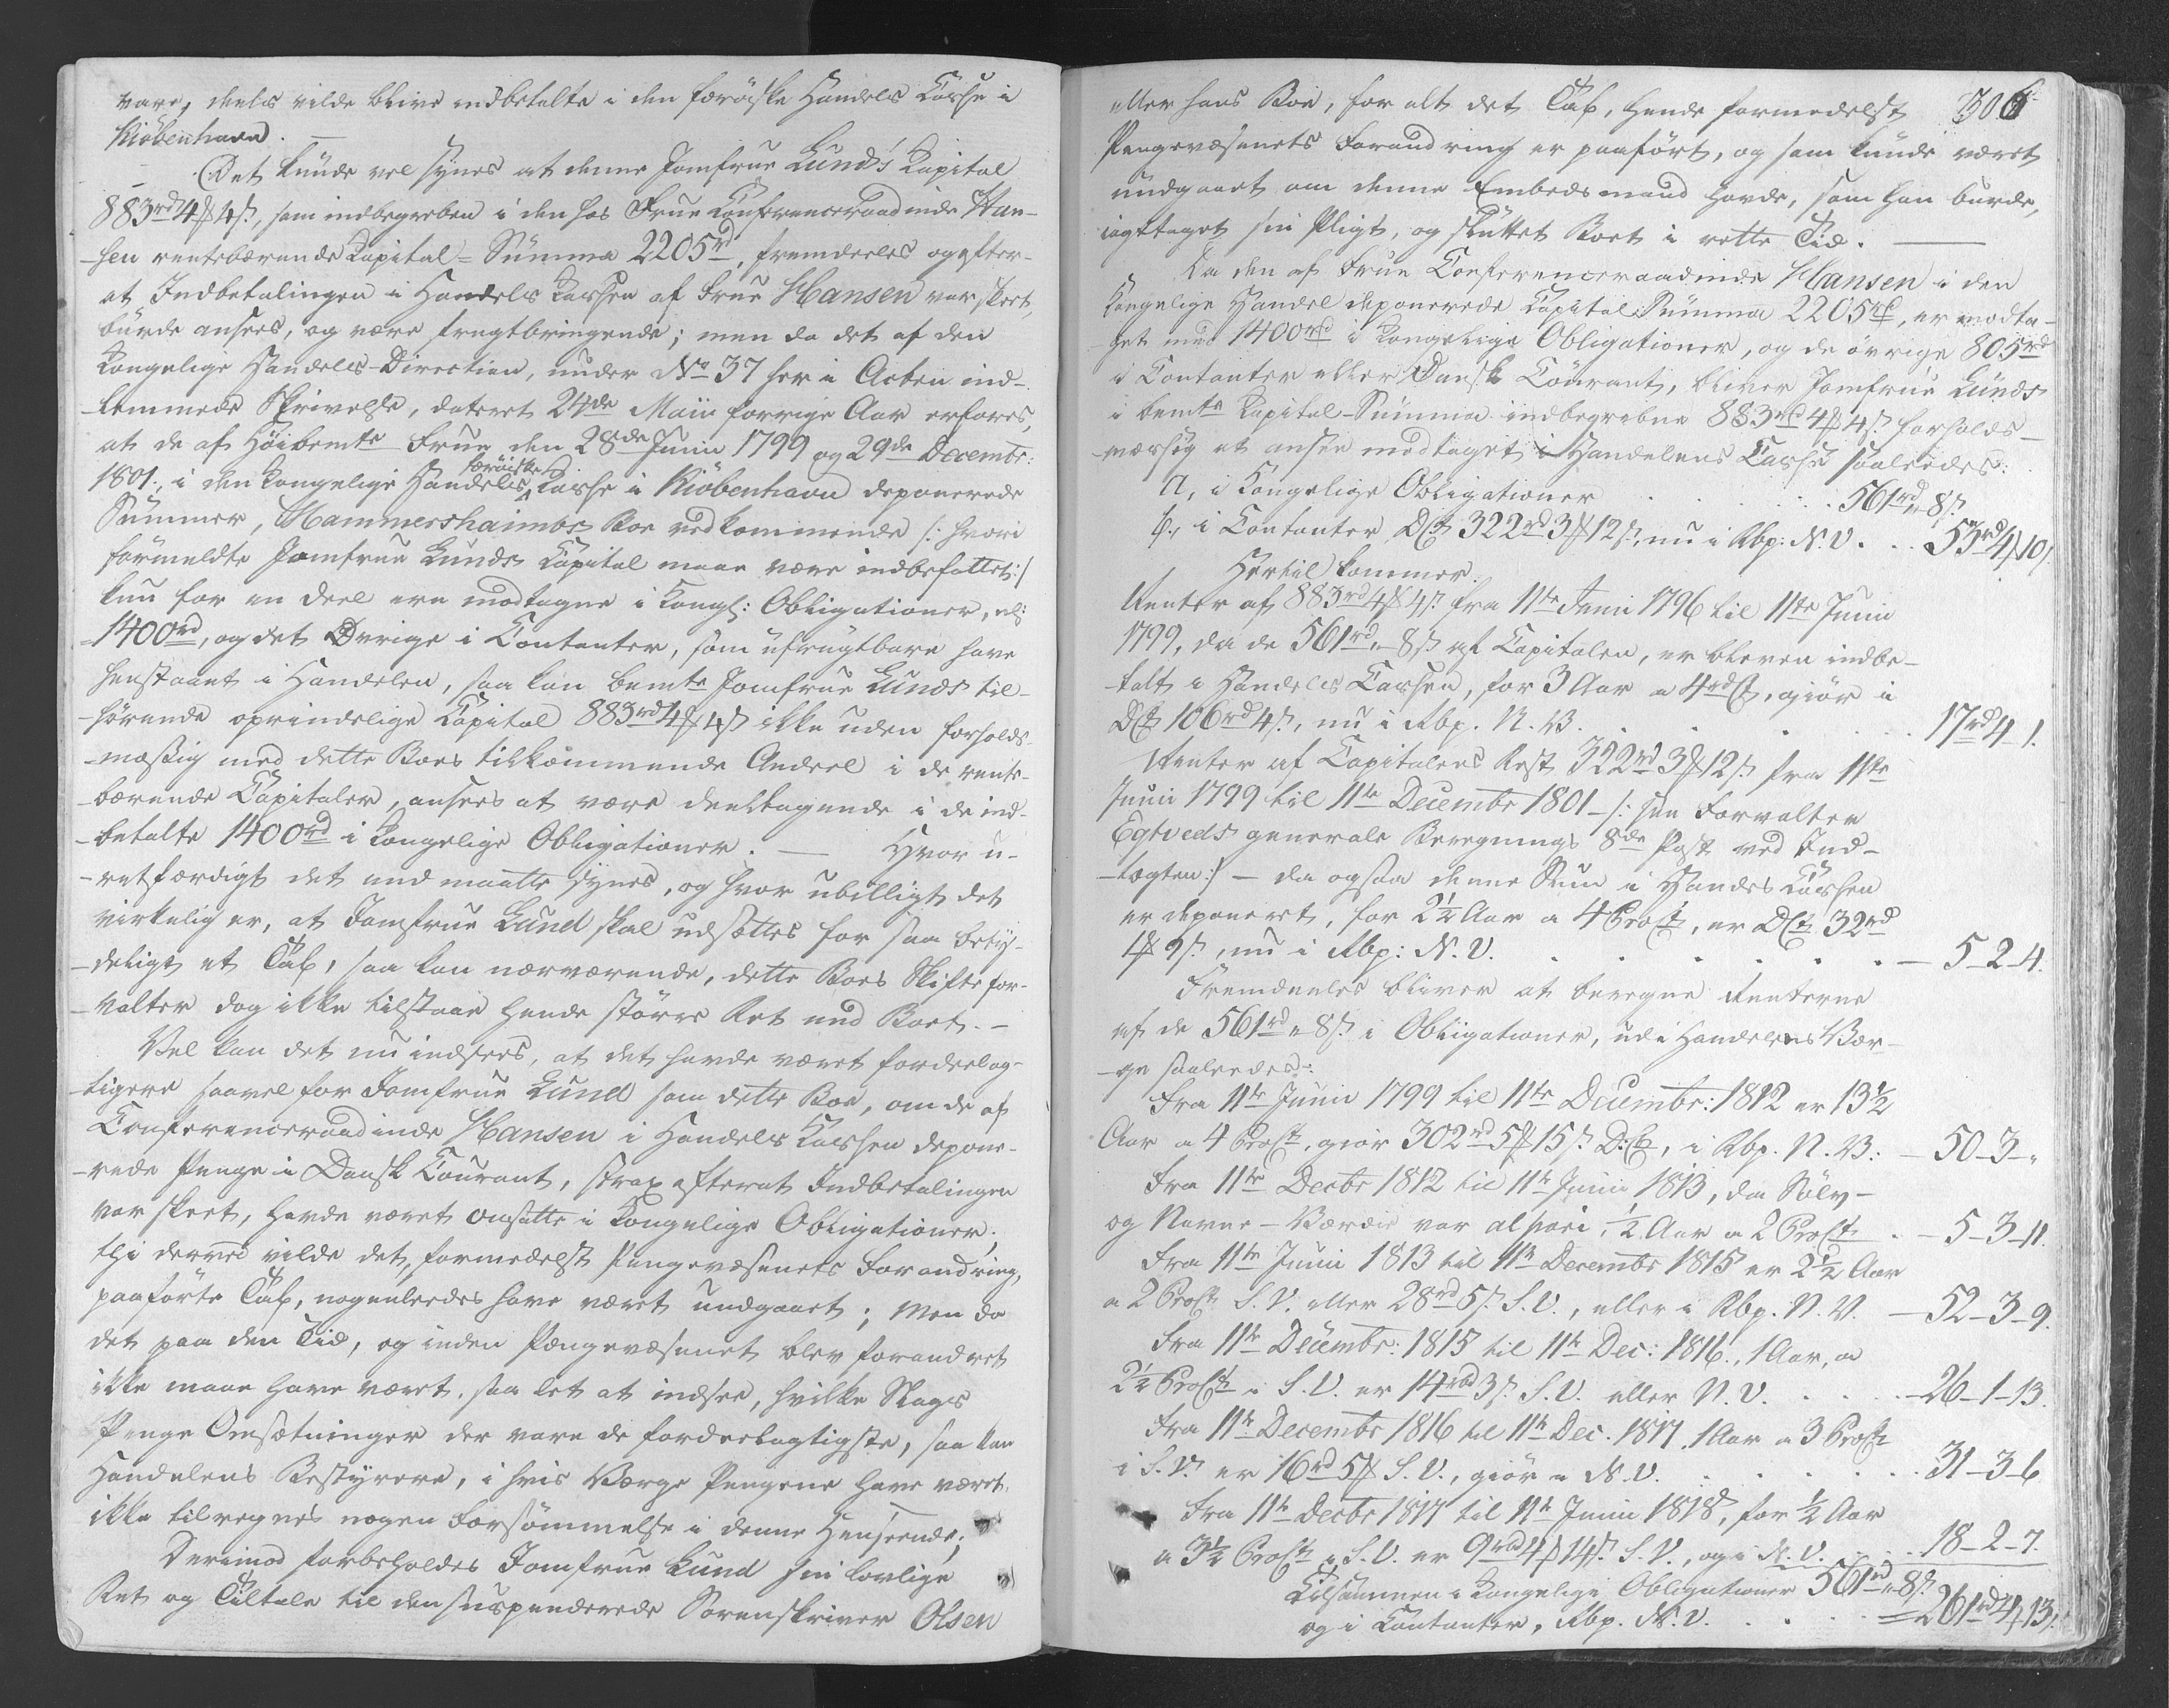 vare, deels vilde blive indbetalte i den færöiske Handels Casse i
Kiöbenhavn. —
Det kunde vel synes at denne Jomfrue Lund's Kapital
883rd 4 ₰ 4 s., som indbegreben i den hos Frue Conferenceraadinde Han-
-sen rentebærende Kapital-Summa 2205rd, fremdeeles og efter-
at Indbetalingen i Handels Cassen af Frue Hansen var skeet,
burde ansees, og være frugtbringende; men da det af den
Kongelige Handels-Direction, under No 37 her i Acten ind-
-lemmede Skrivelse, dateret 24de Maii forrige Aar erfares,
at de af Höibemte Frue den 28de Junii 1799 og 29de Decembr:
færöiske
1801., i den Kongelige Handels Casse i Kiöbenhavn deponerede
Summer, Hammershaimbs Boe vedkommende /: hvori
formeldte Jomfrue Lunds Capital maae være indbefattet :/
kun for en Deel ere modtagne i Kongl: Obligationer, nl:
1400rd, og det Övrige i Contanter, som ufrugtbare have
henstaaet i Handelen, saa kan bemte Jomfrue Lunds til-
-hörende oprindelige Capital 883rd 4 ₰ 4 s ikke uden forholds-
-mæssig med dette Boes tilkommende Andeel i de rente-
-bærende Capitaler, ansees at være deeltagende i de ind-
-betalte 1400rd i Kongelige Obligationer. — Hvor u-
-retfærdigt det end maatte synes, og hvor ubilligt det
virkelig er, at Jomfrue Lund skal udsættes for saa bety-
-deligt et Tab, saa kan nærværende, dette Boes Skiftefor-
-valter dog ikke tilstaae hende större Ret end Boet. —
Vel kan det nu indsees, at det havde været fordeelag-
-tigere saavel for Jomfrue Lund som dette Boe, om de af
Conferenceraadinde Hansen i Handels Cassen depone-
-rede Penge i Dansk Courant, strax efterat Indbetalingen
var skeet, havde været omsatte i Kongelige Obligationer;
thi derved vilde det, formedelst Pengevæsenets Forandring,
paaförte Tab, nogenledes have været undgaaet; Men da
det paa den Tid, og inden Pengevæsenet blev forandret
ikke maae have været saa let at indsee, hvilke Slags
Penge Omsætninger der vare de fordeelagtigste, saa kan
Handelens Bestyrere, i hvis Værge Pengene have været,
ikke tilregnes nogen Forsömmelse i denne Henseende;
Derimod forbeholdes Jomfrue Lund sin lovlige
Ret og Tiltale til den suspenderede Sorenskriver Olsen
306
eller hans Boe, for alt det Tab, hende formedelst
Pengevæsenets Forandring er paafört, og som kunde været
undgaaet om denne Embedsmand havde, som han burde,
iagttaget sin Pligt, og sluttet Boet i rette Tid. —
Da den af Frue Conferenceraadinde Hansen i den
Kongelige Handel deponerede Capital Summa 2205rd, er modta-
get med 1400rd i Kongelige Obligationer, og de övrige 805rd
i Contanter eller Dansk Courant, bliver Jomfrue Lunds
i bemte Kapital-Summa indbegrebne 883rd 4 ₰ 4 s. forholds-
-mæssig at ansee modtaget i Handelens Casse saaledes:
a, i Kongelige Obligationer . . . . . 561rd „ 8 s.
b, i Contanter D.Ct. 322rd 3 ₰ 12 s., nu i Rbp: N. V. . . 53rd 4 ₰ 10 s.
Hertil kommer.
Renter af 883rd 4 ₰ 4 s. fra 11te Juni 1796 til 11te Junii
1799, da de 561rd „ 8 s. af Capitalen, er bleven indbe-
-talt i Handels Cassen, for 3 Aar a 4rd Ct, giör i
D.Ct. 106rd 4 s., nu i Rbp. N. V. . . . . 17rd 4 - 1.
Renter af Capitalens Rest 322rd 3 ₰ 12 s. fra 11te
Junii 1799 til 11te Decembr 1801 - /: see Forvalter
Egtveds generale Beregnings 8de Post ved Ind-
-tægten :/ - da ogsaa denne Sum i Handels Cassen
er deponeret, for 2½ Aar a 4 ProCt, er D.Ct. 32rd
1 ₰ 9 s., nu i Rbp: N. V. . . . . . . — 5 - 2 - 4.
Fremdeeles bliver at beregne Renterne
af de 561rd „ 8 s. i Obligationer, udi Handelens Vær-
-ge saaledes:
Fra 11te Junii 1799 til 11te Decembr: 1812 er 13½
Aar a 4 ProCt, giör 302rd 5 ₰ 15 s. D.Ct., i Rbp. N. V.: — 50 - 3 - „
Fra 11te Decbr 1812 til 11te Junii 1813, da Sölv-
og Navne-Værdie var al pari, ½ Aar a 2 ProCt . — 5 - 3 - 11.
Fra 11te Junii 1813 til 11te Decembr 1815 er 2½ Aar
a 2 ProCt. S. V. eller 28rd 5 s. S. V., eller i Rbp. N. V. — 52 - 3 - 9.
Fra 11te Decembr: 1815 til 11te Dec: 1816., 1 Aar, a
2½ ProCt i S. V. er 14rbd 3 s. S. V. eller N. V. . . . . — 26 - 1 - 13.
Fra 11te Decembr 1816 til 11te Dec. 1817, 1 Aar a 3 ProCt
i S. V. er 16rd 5 ₰ S. V., giör i N. V. . . . . . 31 - 3 - 6.
Fra 11te Decbr 1817 til 11te Junii 1818, for ½ Aar
a 3½ ProCt i S. V. er 9rbd 4 ₰ 14 s. S. V., og i N. V. . . . 18 - 2 - 7.
Tilsammen i Kongelige Obligationer 561rd „ 8 s.
og i Contanter, Rbp. N. V. . . . . = 261rd 4 ₰ 13 s.